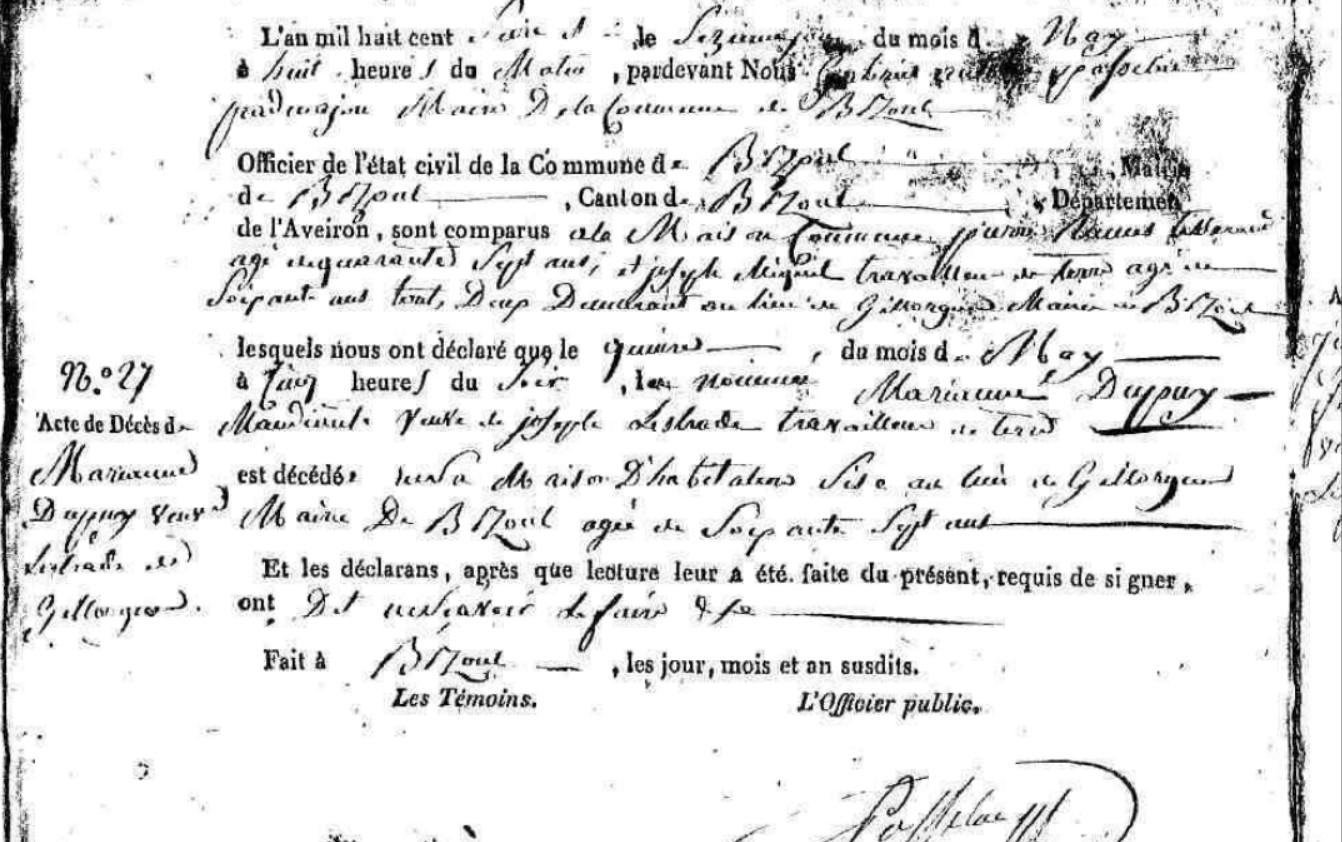 L'an mil huit cent le du mois d May
à huit heures du Matin , pardevant Nous
Maire De la Commune de Bozoul
Officier de l'état civil de la Commune de Bozoul , Mairie
de Bozoul , Canton de Bozoul , Département
de l'Aveiron, sont comparus a la Maison Commune
agé de quarante Sept ans, et joseph travailleur de terre agé de
Soixante ans tout Deux Demeurant au lieu de Gillorgues Mairie de Bozoul
lesquels nous ont déclaré que le quinze , du mois de May
à heures du Soir , la nommée Marianne Duppuy
veuve de joseph Lestrade travailleur de terre
est décédée Maison D'habitation Sise au lieu de Gillorgues
Mairie De Bozoul agée de Soixante Sept ans
N.° 27
Acte de Décès de
Marianne
Duppuy veuve
Lestrade de
Gillorgues.
Et les déclarans, après que lecture leur a été faite du présent, requis de signer,
ont Dit ne Savoir le faire
Fait à Bozoul , les jour, mois et an susdits.
Les Témoins. L'Officier public.